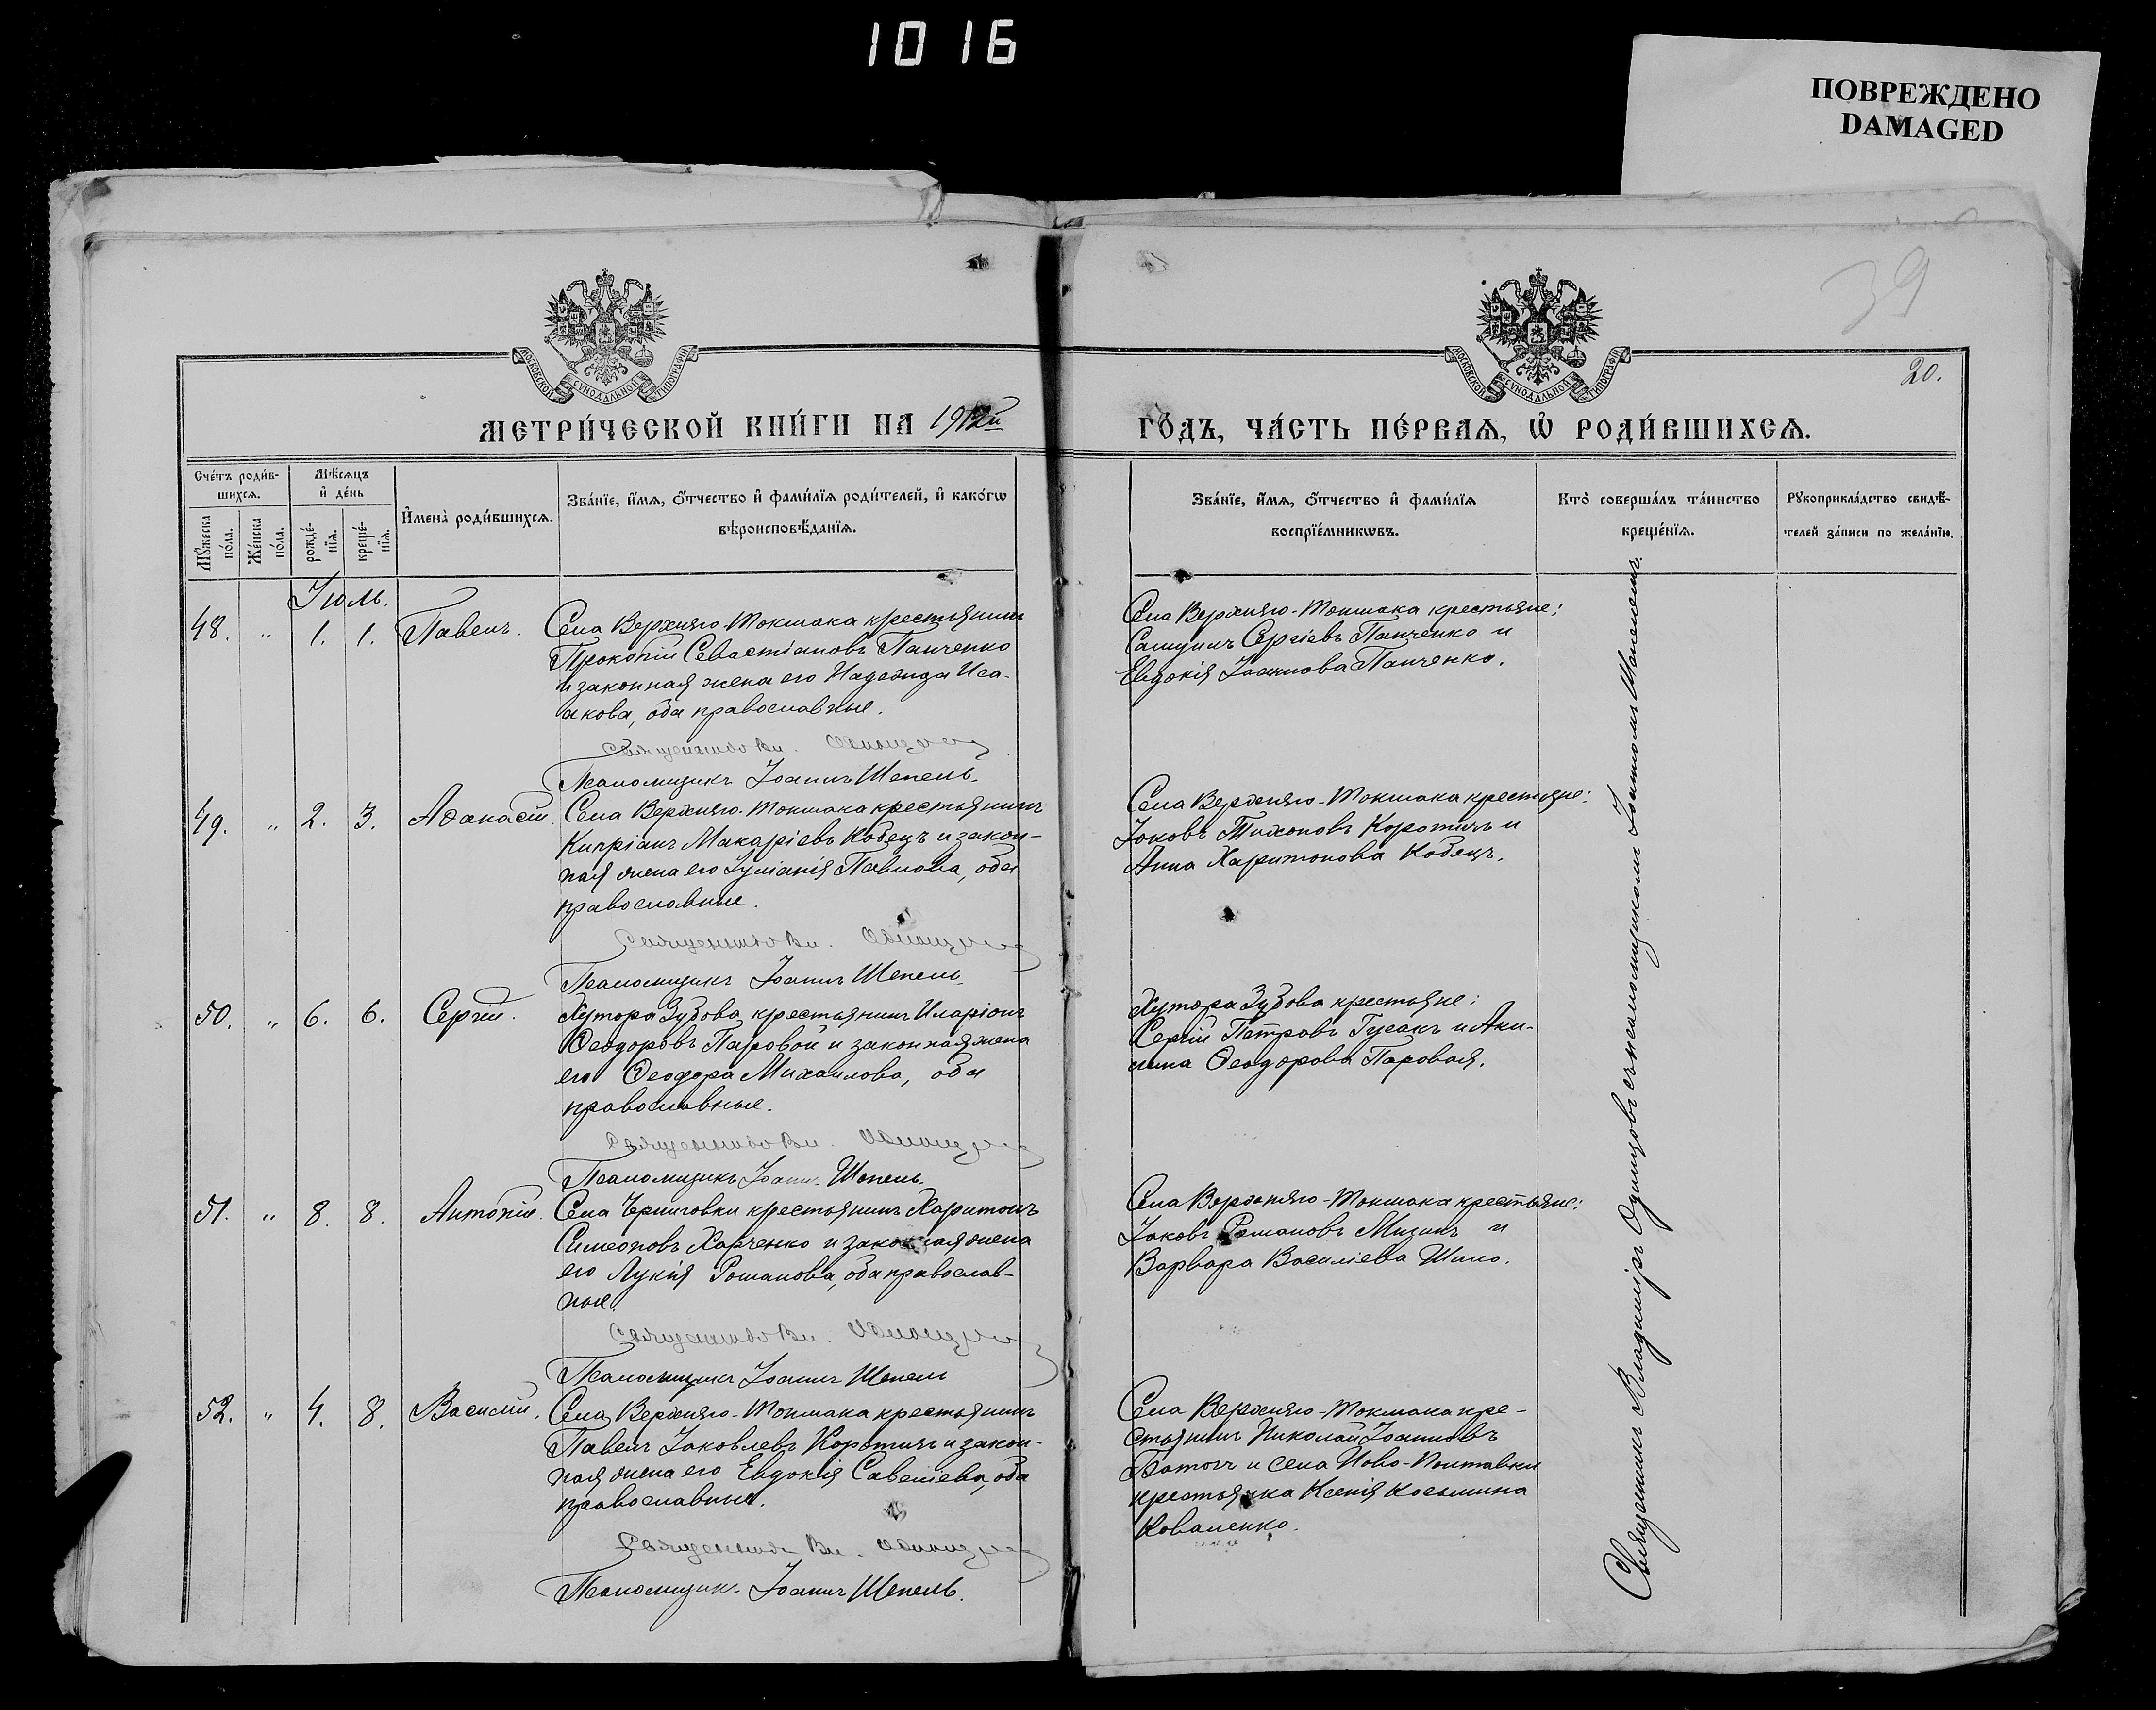 1016
ПОВРЕЖДЕНО
DAMAGED
39
20.
МОСКОВСКОЙ СѴНОДАЛЬНОЙ ТИПОГРАФІИ
МОСКОВСКОЙ СѴНОДАЛЬНОЙ ТИПОГРАФІИ
МЕТРИ́ЧЕСКОЙ КНИ́ГИ НА 1912й
ГО́ДЪ, ЧА́СТЬ ПЕ́РВАѦ, Ѡ҆ РОДИ́ВШИХСѦ.
Счéтъ роди́в-
шихсѧ.
Мꙋ́жеска
по́ла.
Же́нска
по́ла.
Мѣ́сѧцъ
и҆ де́нь
рожде́-
нїѧ.
креще́-
нїѧ.
И҆мена̀ роди́вшихсѧ.
Зва́нїе, и҆́мѧ, ѻ҆́тчество и҆ фами́лїѧ роди́телей, и҆ како́гѡ
вѣроисповѣ́данїѧ.
Зва́нїе, и҆́мѧ, ѻ҆́тчество и҆ фами́лїѧ
воспрїе́мникѡвъ.
Кто̀ соверша́лъ та́инство
креще́нїѧ.
Рꙋкоприкла́дство свидѣ́-
телей за́писи по жела́нїю.
Іюль.
48. " 1. 1. Павелъ.
Села Верхняго-Токмака крестьянинъ
Прокопій Севастіановъ Панченко
и законная жена его Надежда Иса-
акова, оба православные.
Псаломщикъ Іоаннъ Шепель.
Села Верхняго-Токмака крестьяне:
Самуилъ Сергіевъ Панченко и
Евдокія Іоаннова Панченко.
49. " 2. 3. Аѳанасій.
Села Верхняго-Токмака крестьянинъ
Кипріанъ Макаріевъ Кобецъ и закон-
ная жена его Іуліанія Павлова, оба
православные.
Псаломщикъ Іоаннъ Шепель.
Села Верхняго-Токмака крестьяне:
Іаковъ Тихоновъ Коротичъ и
Анна Харитонова Кобецъ.
50. " 6. 6. Сергій.
Хутора Зубова крестьянинъ Иларіонъ
Ѳеодоровъ Паровой и законная жена
его Ѳеодора Михаилова, оба
православные.
Псаломщикъ Іоаннъ Шепель.
Хутора Зубова крестьяне:
Сергій Петровъ Гусакъ и Аки-
лина Ѳеодорова Паровая.
51. " 8. 8. Антоній.
Села Черниговки крестьянинъ Харитонъ
Симеоновъ Харченко и законная жена
его Лукія Романова, оба православ-
ные.
Псаломщикъ Іоаннъ Шепель
Села Верхняго-Токмака крестьяне:
Іаковъ Романовъ Мизинъ и
Варвара Василіева Шило.
52. " 4. 8. Василій.
Села Верхняго-Токмака крестьянинъ
Павелъ Іаковлевъ Коротичъ и закон-
ная жена его Евдокія Савеліева, оба
православные.
Псаломщик. Іоаннъ Шепель.
Села Верхняго-Токмака кре-
стьянинъ Николай Іоанновъ
Батогъ и села Ново-Полтавки
крестьянка Ксенія Косьмина
Коваленко.
Священникъ Владиміръ Одинцовъ съ псаломщикомъ Іоанномъ Шепелемъ.